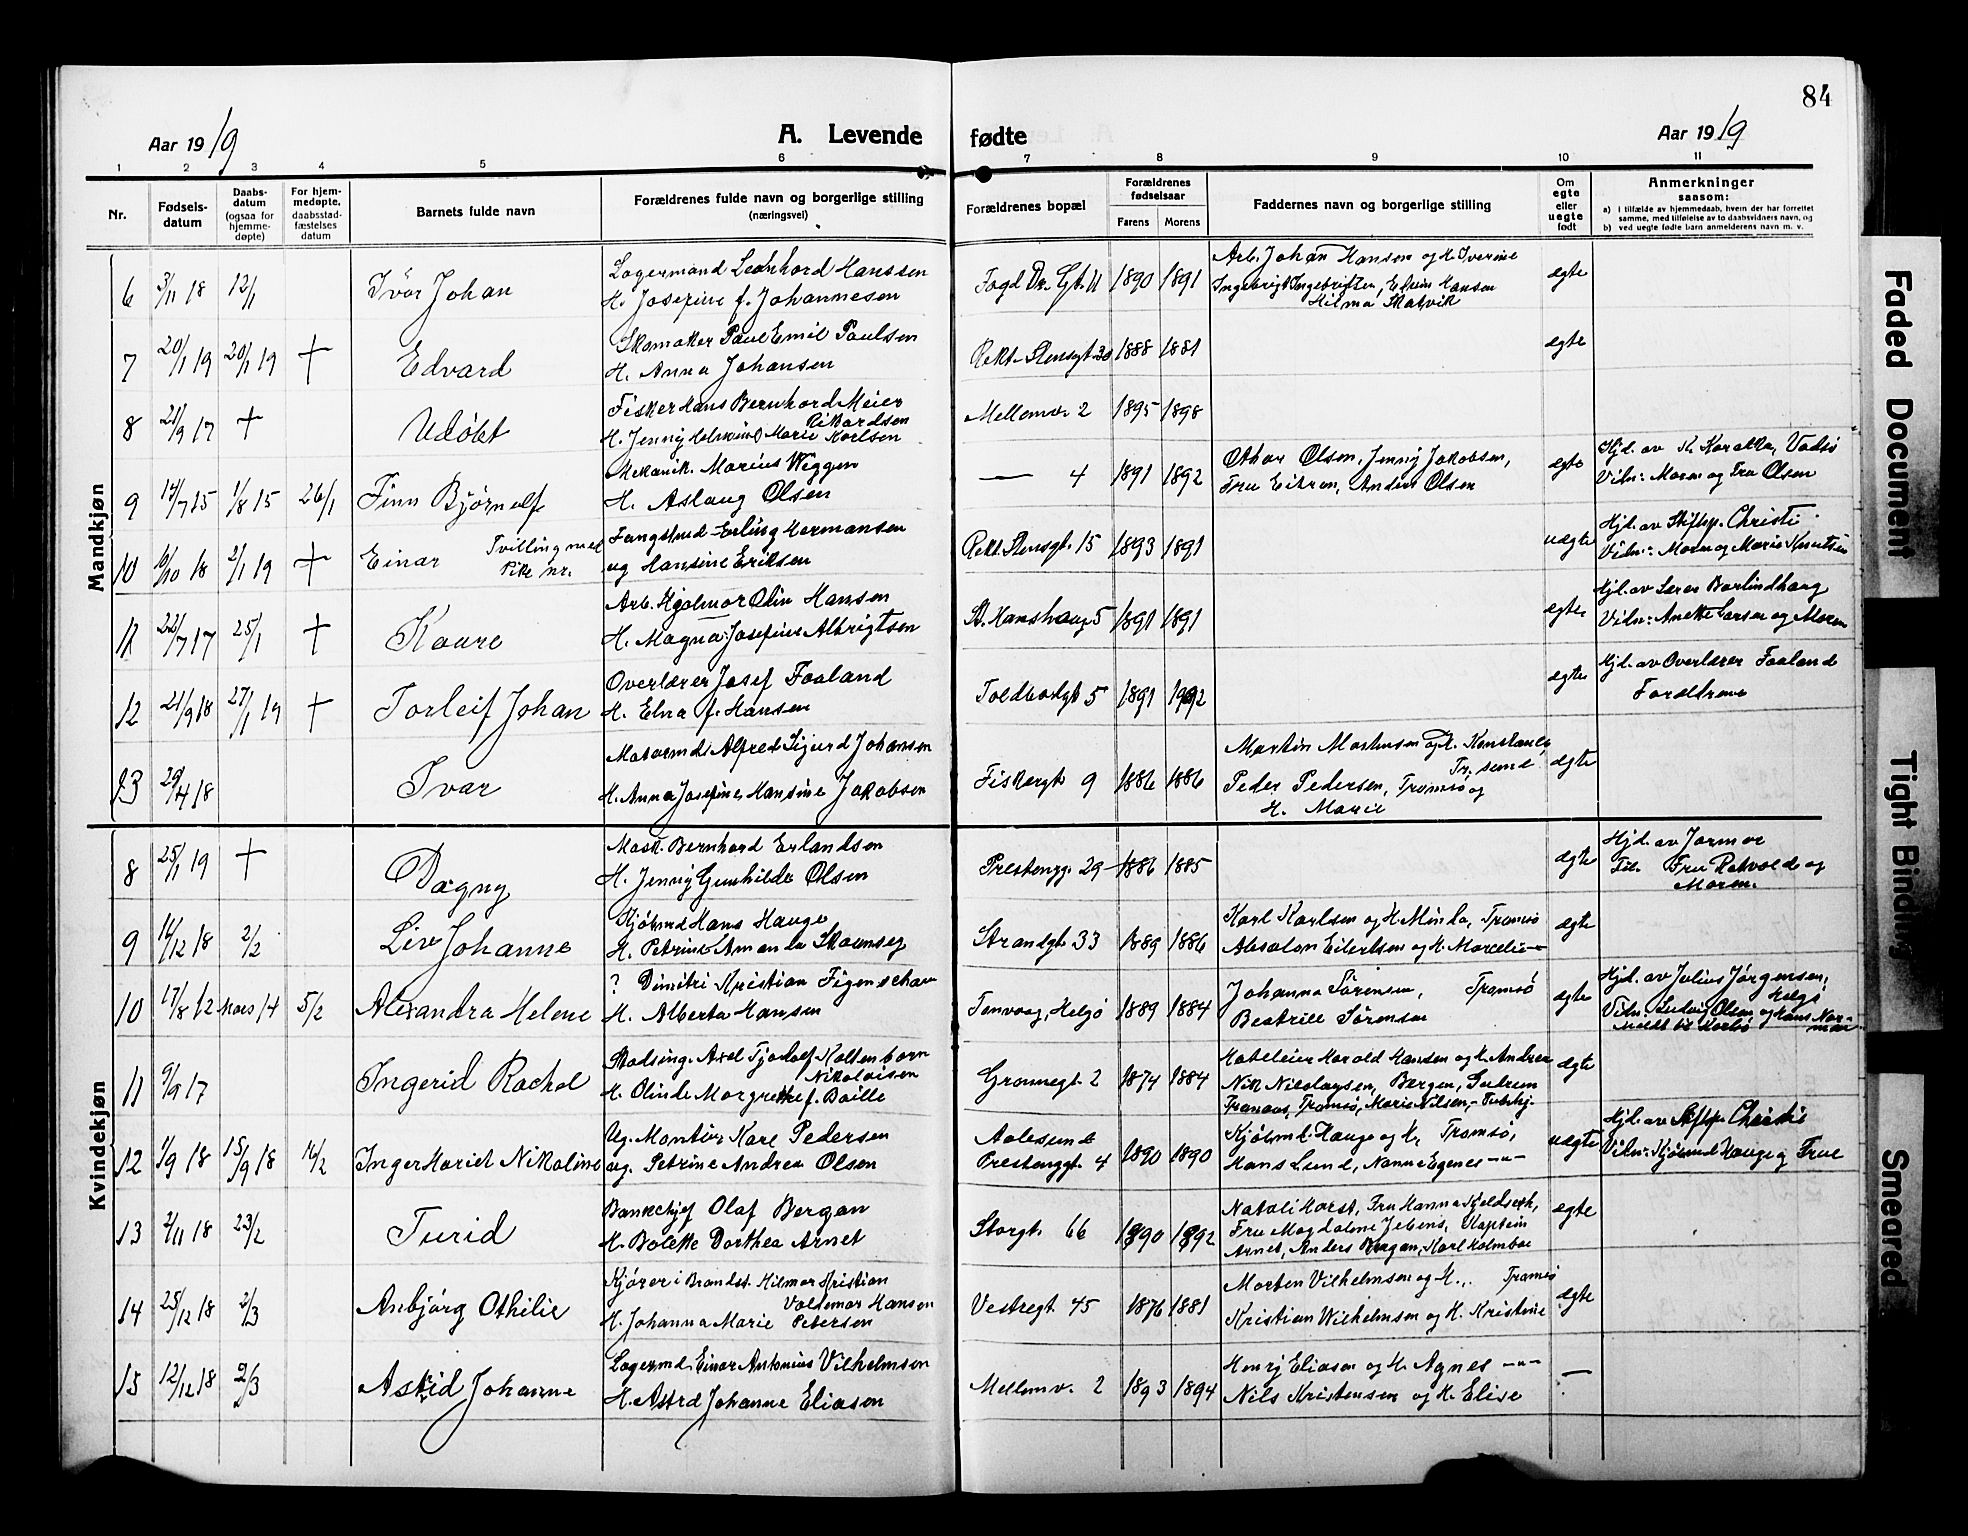 84
Aar 1919
A. Levende fødte
Aar 1919
1 2 3 4 5 6 7 8 9 10 11
Nr.
Fødsels-
datum
Daabs-
datum
(ogsaa for
hjemme-
døpte)
For hjem-
medøpte,
daabsstad-
fæstelses
datum
Barnets fulde navn
Forældrenes fulde navn og borgerlige stilling
(næringsvei)
Forældrenes bopæl
Forældrenes
fødselsaar
Farens Morens
Faddernes navn og borgerlige stilling
Om
egte
eller
uegte
født
Anmerkninger
saasom:
a) I tilfælde av hjemmedaab, hvem der har forrettet
samme, med tilføielse av to daabsvidners navn, og
b) ved uegte fødte barn anmelderens navn m. v.
Mandkjøn
6 3/11 18 12/1 Ivar Johan
Lagermand Leonhard Hanssen
H. Josefine f. Johannesen
Fogd Dr. Gt. 11 1890 1891
Arb. Johan Hansen og H. Iverine
Ingebrigt Ingebrigtsen, Elvin Hansen
Hilma Skatvik
egte
7 20/1 19 20/1 19 + Edvard
Skomaker Paul Emil Paulsen
H. Anna Johansen
Rekt. Stensgt. 30 1888 1881
egte
8 21/9 17 + Udøbt
Fisker Hans Bernhard Meier
Rikardsen
H. Jenny Marie Karlsen
Mellemv. 2 1895 1898
9 14/7 15 1/8 15 26/1 Finn Bjørnulf
Mekanik. Marius Weggen
H. Aslaug Olsen
— 4 1891 1892
Othar Olsen, Jenny Jakobsen,
Fru Eikren, Anders Olsen
egte
Hjd. av K. Vadsø
Vidn: Moren og Fru Olsen
10 6/10 18 2/1 19 + Einar Tvilling med
Pike nr.
Fangstmd Erling Hermansen
og Hansine Eriksen
Rekt. Stensgt. 15 1893 1891
uegte
Hjd. av Stiftsp. Christi
Vidn: Moren og Marie Knutsen
11 22/7 17 25/1 + Kaare
Arb. Hjalmar Odin Hansen
H. Magna Josefine Albrigtsen
St. Hanshaug 5 1891 1891
egte
Hjd. av Søren Barlindhaug
Vidn: Anette Larsen og Moren
12 21/9 18 27/1 19 + Torleif Johan
Overlærer Josef Faaland
H. Elna f. Hansen
Toldbodgt 5 1891 1992
egte
Hjd. av Overlærer Faaland
Forældrene
13 29/4 18 Ivar
Motormd. Alfred Sigurd Johansen
H. Anna Josefine Hansine Jakobsen
Fiskergt 9 1886 1886
Martin Mortensen og H. Konstanse,
Tr. sund
Peder Pedersen, Tromsø og
H. Marie
egte
Kvindekjøn
8 25/1 19 + Dagny
Mask. Bernhard Erlandsen
H. Jenny Gunhilde Olsen
Prestengg. 29 1886 1885
egte
Hjd. av Jormor
Til. Fru Rekvold og
Moren.
9 14/12 18 2/2 Liv Johanne
Kjøbmd Hans Hauge
H. Petrine Amanda
Strandgt. 33 1889 1886
Karl Karlsen og H. Minda, Tromsø
Absalon Eilertsen og H. Marcelie —"—
egte
10 17/8 12 Mars 14 5/2 Alexandra Helene
? Dimitri Kristian Figenschau
H. Alberta Hansen
Tenvaag, Helgø 1889 1884
Johanna Sørensen, Tromsø
Beatrice Sørensen
egte
Hjd. av Julius Jørgensen,
Helgø
Vidn: Ludvig Olsen og Hans Nor-
man
Meldt til Karlsø
11 9/9 17 Ingerid Rachel
Stadsing. Axel Tjodolf Koltenborn
Nikolaisen
H. Olinde Margrethe f. Baille
Grønnegt. 2 1874 1884
Hoteleier Harald Hansen og H. Andrea
Nik Nikolaysen, Bergen, Gudrun
Tranaas, Tromsø, Marie Nilsen, —
egte
12 1/9 18 15/9 18 16/2 Inger Hariet Nikoline
Ug. Montør Kare Pedersen
ug. Petrine Andrea Olsen
Aalesund
Prestenggt. 4 1890 1890
Kjøbmd. Hauge og H., Tromsø,
Hans Lund, Nanna Egenes —"—
uegte
Hjd. av Stiftsp. Christie
Vidn: Kjøbmd Hauge og Frue
13 2/11 18 23/2 Turid
Bankchef Olaf Bergan
H. Bolette Dorthea Arnet
Storgt. 66 1890 1892
Natali Horst, Fru Hanna Kjeldseth,
Fru Magdalene Jebens, Kaptein
Arnet, Anders Bergan, Karl Holmboe
egte
14 25/12 18 2/3 Anbjørg Othilie
Kjører i Brandst. Hilmar Kristian
Valdemar Hansen
H. Johanna Marie Petersen
Vestregt. 45 1876 1881
Morten Vilhelmsen og H., Tromsø
Kristian Wilhelmsen og H. Kristine
egte
15 12/12 18 2/3 Astrid Johanne
Lagermd. Einar Antonius Vilhelmsen
H. Astrd Johanne Eliasen
Mellemv. 2 1893 1894
Henrj Eliasen og H. Agnes —"—
Nils Kristensen og H. Elise
—
Faded Document
Tight Binding
Smeared